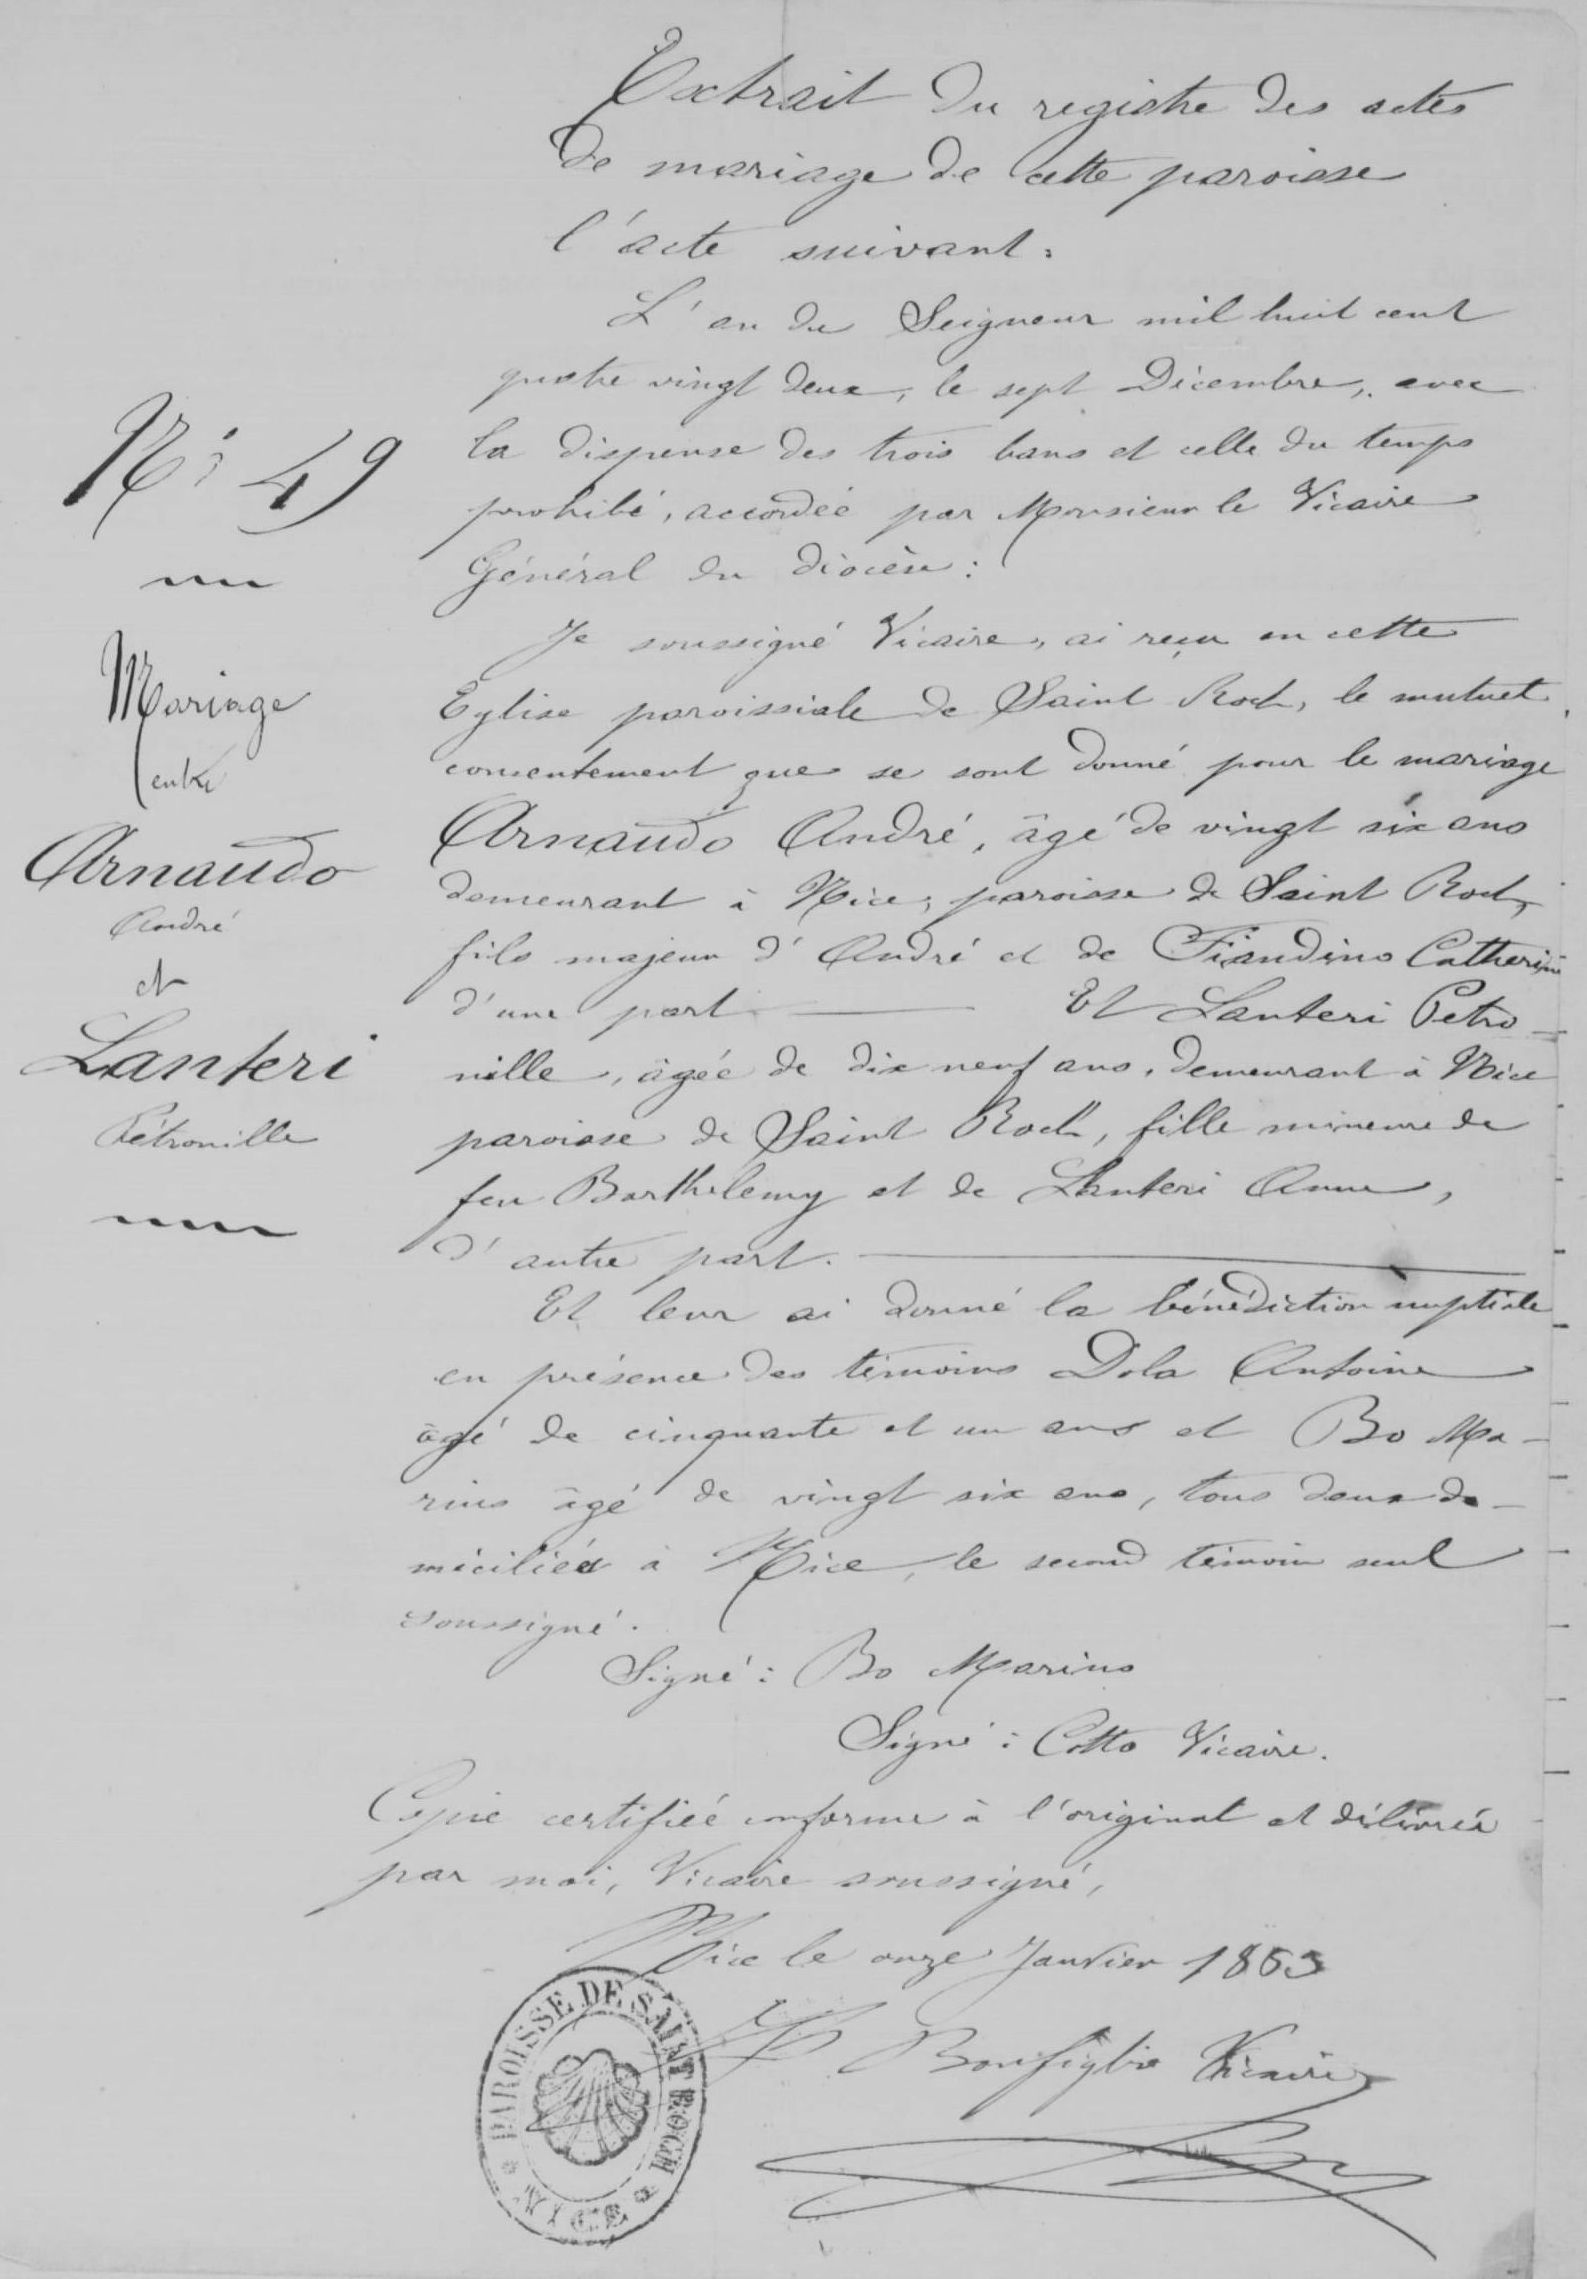 Extrait du registre des actes
de mariage de cette paroisse
l'acte suivant :
L'an du Seigneur mil huit cent
quatre vingt deux, le sept Décembre, avec
la dispense des trois bans et celle du temps
prohibé, accordée par Monsieur le Vicaire
Général du diocèse :
Je soussigné Vicaire, ai reçu en cette
Eglise paroissiale de Saint Roch, le mutuel
consentement que se sont donné pour le mariage
Arnaudo André, âgé de vingt six ans
demeurant à Nice, paroisse de Saint Roch,
fils majeur d'André et de Fiandino Catherine
d'une part Et Lanteri Petro-
nille, âgée de dix neuf ans, demeurant à Nice
paroisse de Saint Roch, fille mineure de
feu Barthelemy et de Lanteri Anne,
d'autre part.
Et leur ai donné la bénédiction nuptiale
en présence des témoins Dola Antoine
âgé de cinquante et un ans et Bo Ma-
rius âgé de vingt six ans, tous deux do-
miciliés à Nice, le second témoin seul
soussigné.
Signé : Bo Marius
Signé : Cotto Vicaire.
Copie certifiée conforme à l'original et délivrée
par moi, Vicaire soussigné,
Nice le onze Janvier 1883
Bonfiglio Vicaire
PAROISSE DE SAINT ROCH
* NICE *
N° 49
Mariage
entre
Arnaudo
André
et
Lanteri
Pétronille